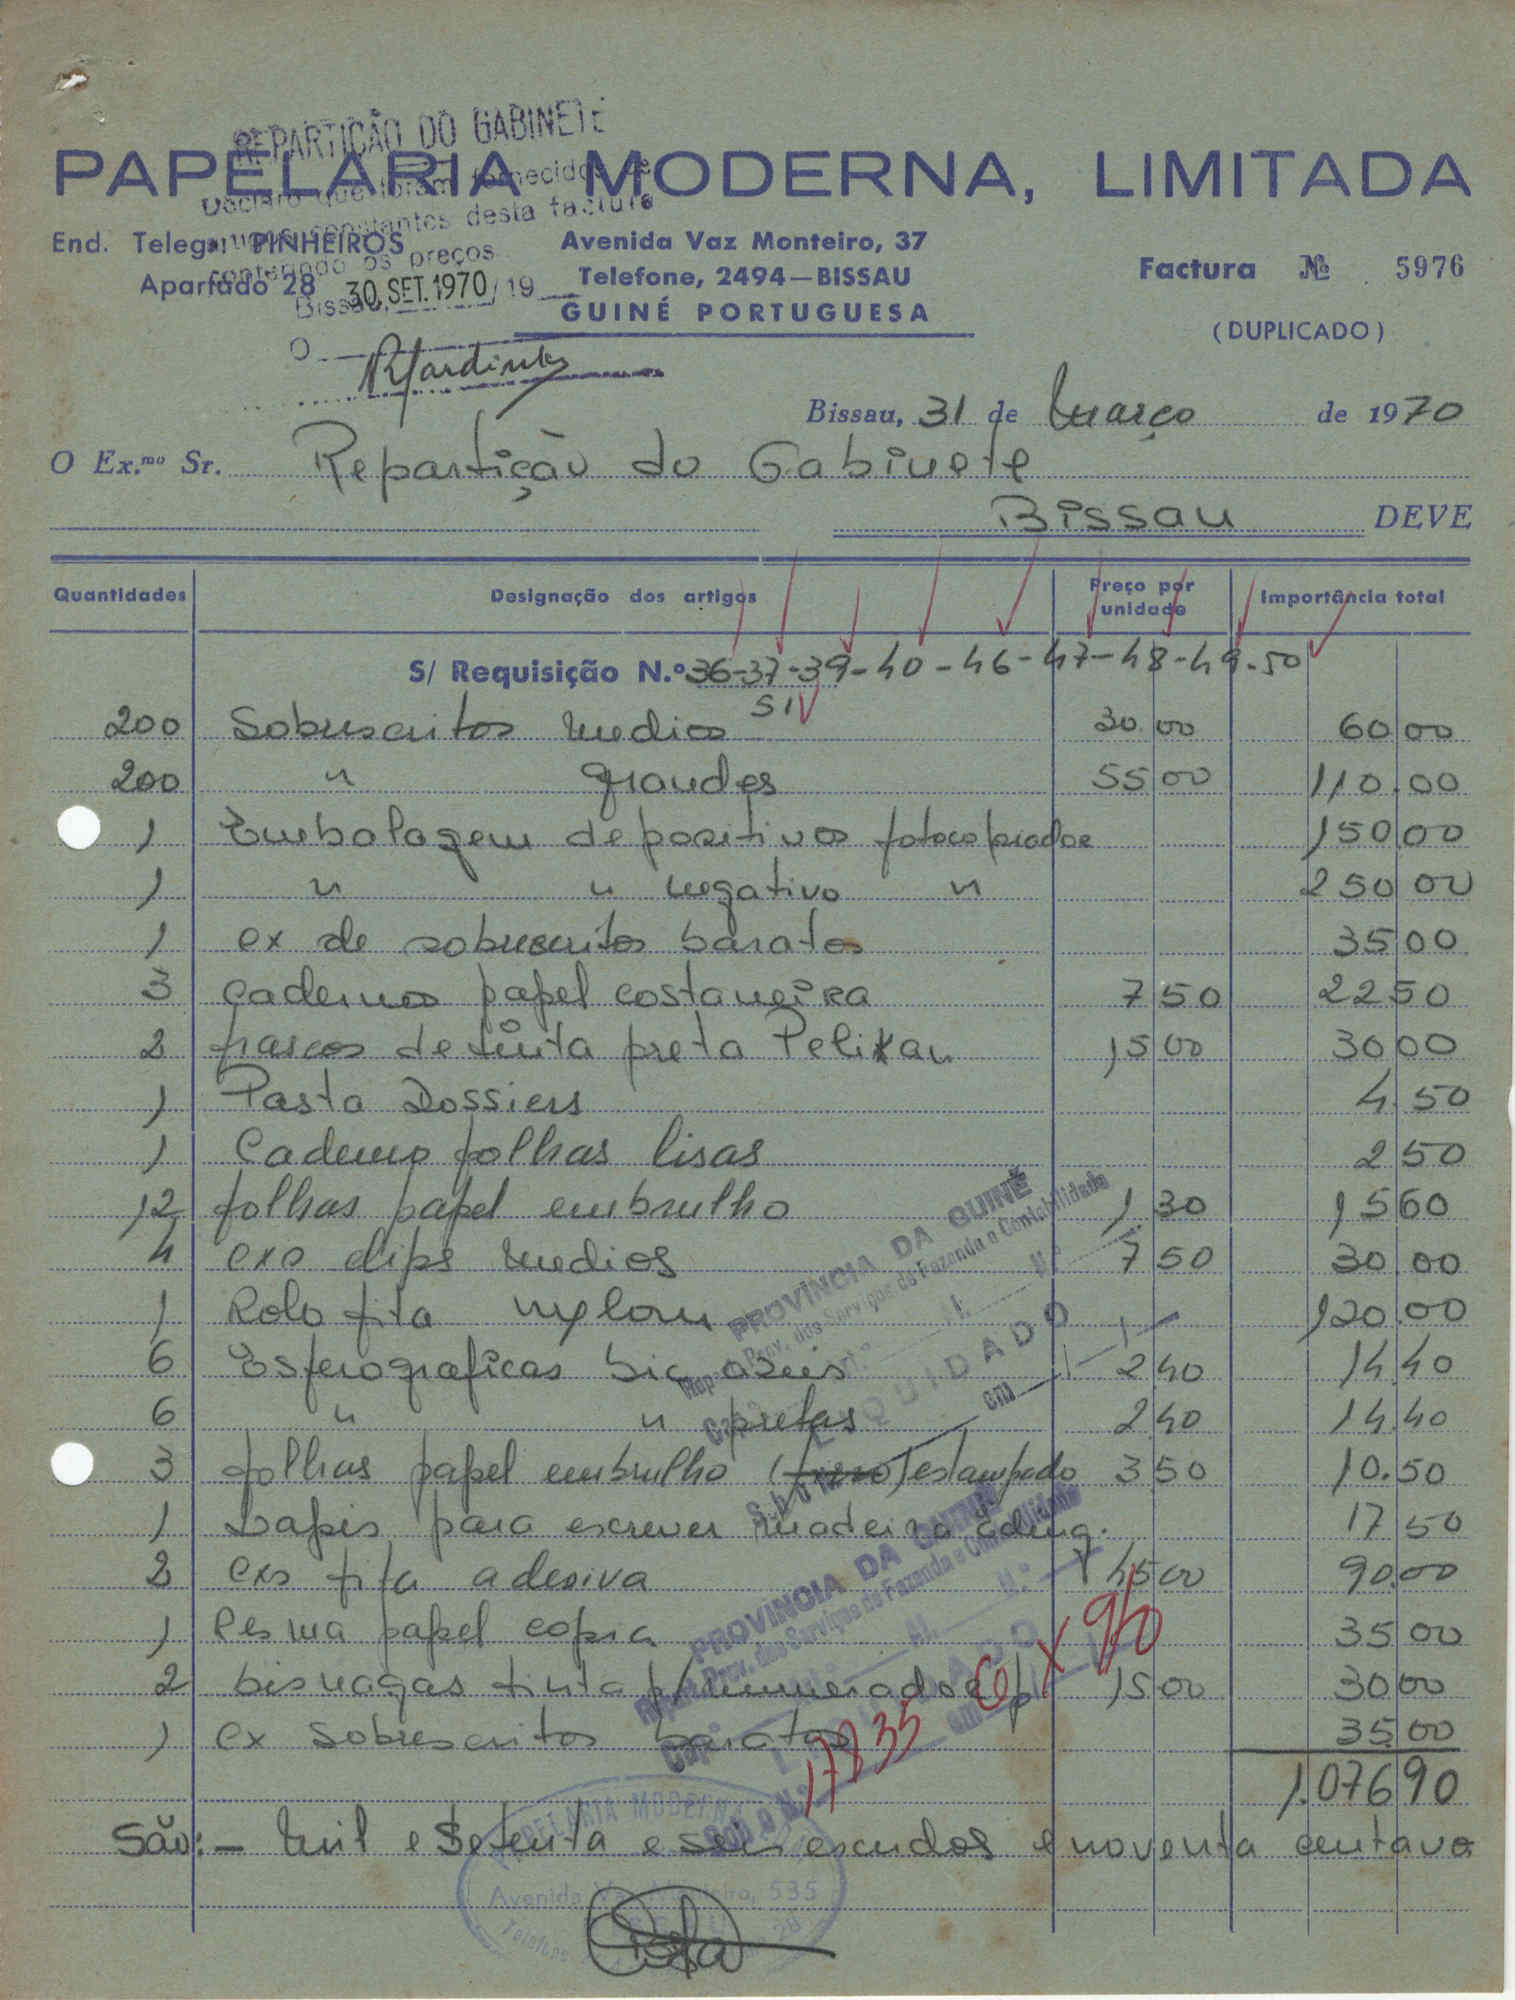 REPARTIÇÃO DO GABINETE
PAPELARIA MODERNA, LIMITADA
Declaro que foram fornecidos
constantes desta factura
contendo os preços
End. Teleg.: PINHEIROS
Apartado 28
Bissau, 30.SET.1970/19
O
Avenida Vaz Monteiro, 37
Telefone, 2494—BISSAU
GUINÉ PORTUGUESA
Factura № 5976
(DUPLICADO)
Bissau, 31 de Março de 1970
O Ex.mo Sr. Repartição do Gabinete
Bissau DEVE
Quantidades Designação dos artigos Preço por unidade Importância total
S/ Requisição N.º 36-37-39-40-46-47-48-49-50
51
200 Sobuscritos medios 30.00 60.00
200 " grandes 55 00 110.00
1 Embalagem de positivos fotocopiador 150 00
1 " " negativo " 250 00
1 ex de sobrescritos baratos 35 00
3 cadernos papel costaneira 7 50 22 50
2 frascos de tinta preta Pelikan 15 00 30 00
1 Pasta Dossiers 4.50
1 Caderno folhas lisas 2 50
12 folhas papel embrulho 1 30 15 60
4 exs clips medios 7 50 30.00
1 Rolo fita nylom 120.00
6 Esferograficas bic azuis 2 40 14.40
6 " " pretas 2 40 14.40
3 folhas papel embrulho () estampado 3 50 10.50
1 Lapis para escrever madeira 17 50
2 exs fita adesiva 45 00 90.00
1 Resma papel copia 35 00
2 bisnagas tinta p/numerador 15 00 30 00
1 ex sobrescritos baratos 35.00
1.076 90
São:- Mil e Setenta e seis escudos e noventa centavos
PROVINCIA DA GUINÉ
Rep. Prov. dos Serviços de Fazenda e Contabilidade
LIQUIDADO em
PROVINCIA DA GUINÉ
Rep. Prov. dos Serviços de Fazenda e Contabilidade
Sob o N.º 17835
PAPELARIA MODERNA
Avenida Vaz Monteiro, 535